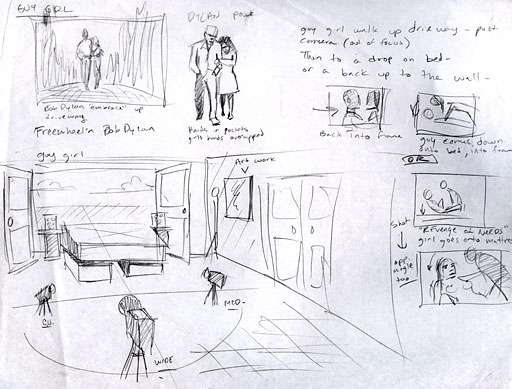 GUY GIRL
Bob Dylan "embrace" up
driveway
Freewheel'n Bob Dylan
DYLAN POSE
Hands in pockets
girls hands overlapped
guy girl walk up driveway - past
camera (out of focus)
Then to a drop on bed -
or a back up to the wall -
Back into frame
guy comes down
onto bed, into frame
OR
"REVENGE of NERDS"
girl goes onto mattress
Shot
opp.
angle
too
guy girl
Art work
CU.
WIDE
MED-